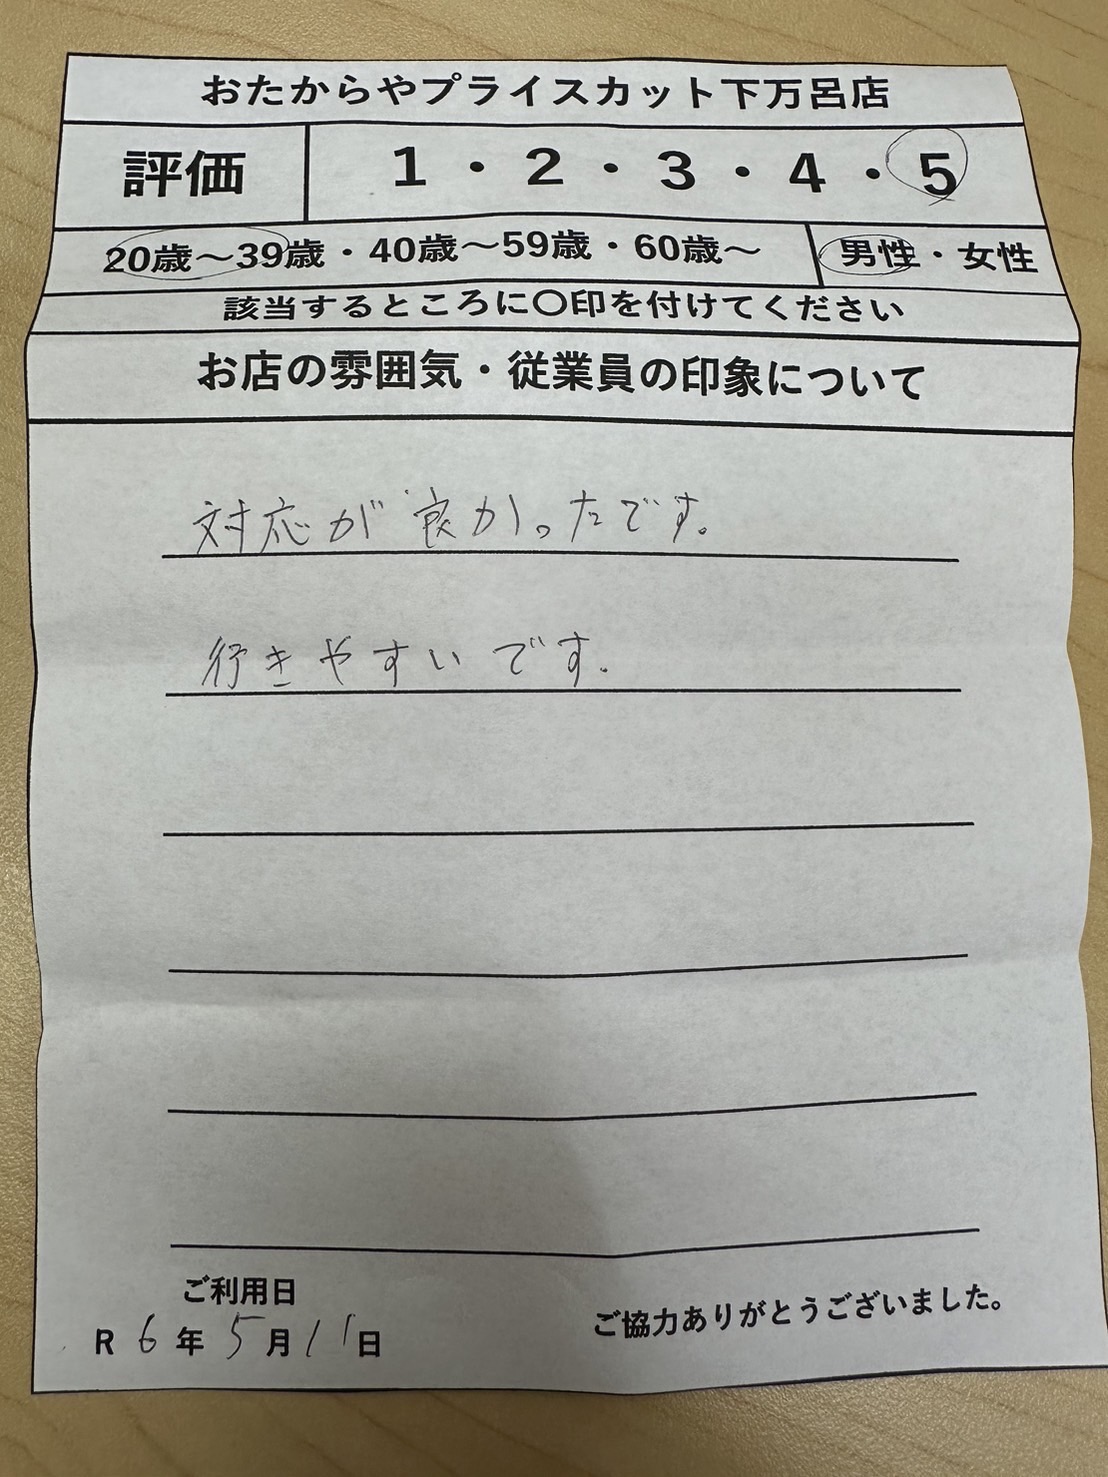 おたからやプライスカット下万呂店
評価 1・2・3・4・5
20歳～39歳・40歳～59歳・60歳～ 男性・女性
該当するところに〇印を付けてください
お店の雰囲気・従業員の印象について
対応が良かったです。
行きやすいです。
ご利用日
R6年5月11日
ご協力ありがとうございました。